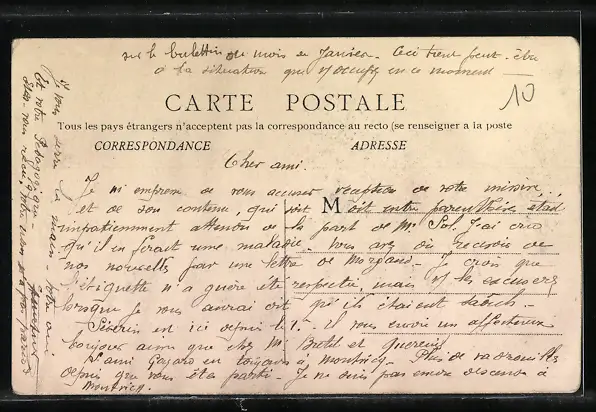 sur le bulletin du mois de Janvier. Ceci tient peut-être
à la situation que j'occupe en ce moment
10
CARTE POSTALE
Tous les pays étrangers n'acceptent pas la correspondance au recto (se renseigner à la poste
CORRESPONDANCE
ADRESSE
Cher ami.
Je m'empresse de vous accuser réception de votre missive
et de son contenu, qui soit M dit entre parenthèses était
impatiemment attendu de la part de Mr Sol. J'ai cru
qu'il en ferait une maladie. Vous avez dû recevoir de
nos nouvelles par une lettre de Morgand. Je crois que
l'étiquette n'a guère été respectée, mais
lorsque je vous aurai dit qu'ils étaient
Séverin est ici depuis le 1. Il vous envoie un affectueux
bonjour ainsi que chez Mr Bretel et
L'ami est toujours à Montricq. Plus de
depuis que vous êtes parti. Je ne suis pas encore descendu à
Montricq.
Je vous serre la main - votre ami
Et votre